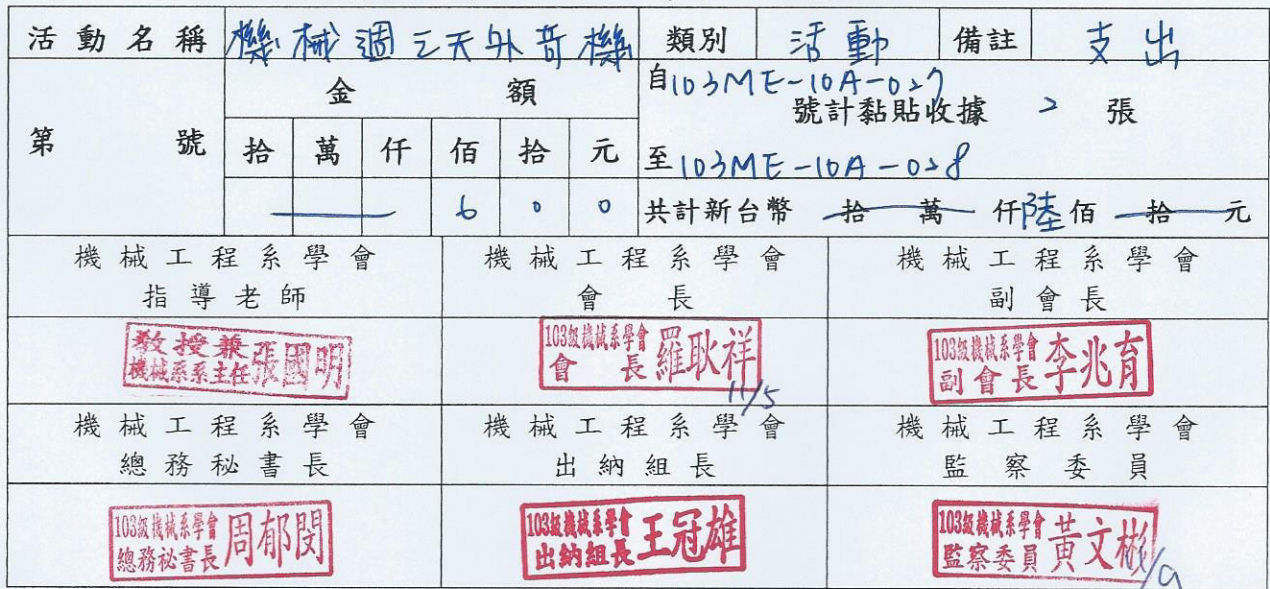 活動名稱 機械週之天外奇機 類別 活動 備註 支出
第 號
金 額
拾 萬 仟 佰 拾 元
6 0 0
自103ME-10A-027
號計黏貼收據 2 張
至103ME-10A-028
共計新台幣 拾 萬 仟陸佰 拾 元
機械工程系學會 機械工程系學會 機械工程系學會
指導老師 會長 副會長
教授兼
機械系系主任 張國明
103級機械系學會
會長 羅耿祥
11/5
103級機械系學會
副會長 李兆育
機械工程系學會 機械工程系學會 機械工程系學會
總務秘書長 出納組長 監察委員
103級機械系學會
總務秘書長 周郁閔
103級機械系學會
出納組長 王冠雄
103級機械系學會
監察委員 黃文彬